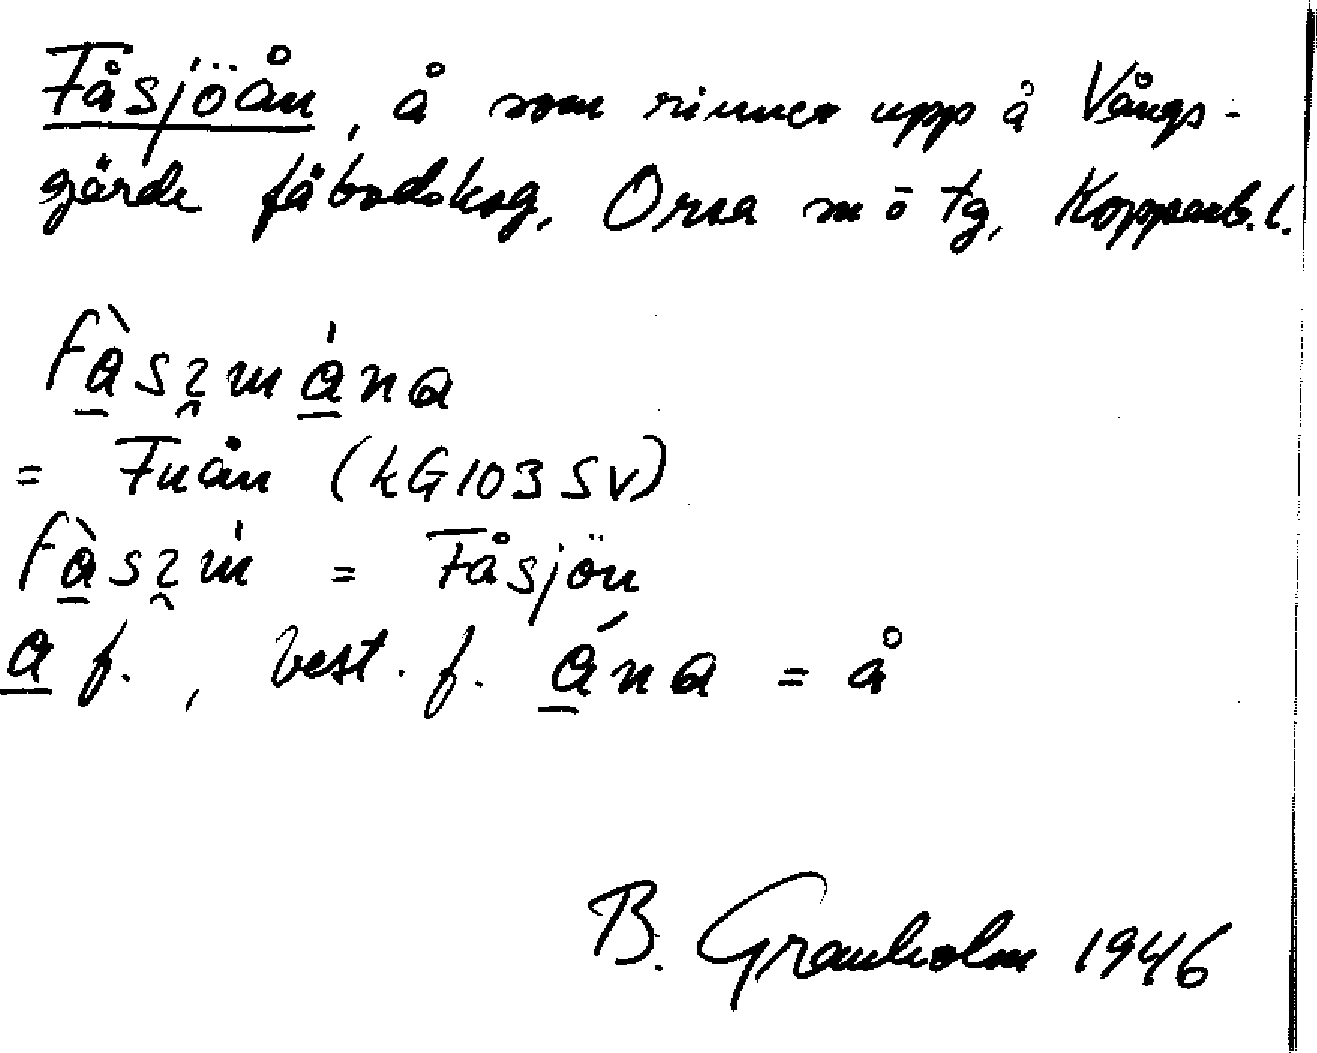 Fåsjöån, å som rinner upp å Vångs-
gärde fäbodskog, Orsa sn o tg, Kopparb. l.
= Fuån (kG 103 SV)
= Fåsjön
a f., best. f. ána = å
B. Granholm 1946